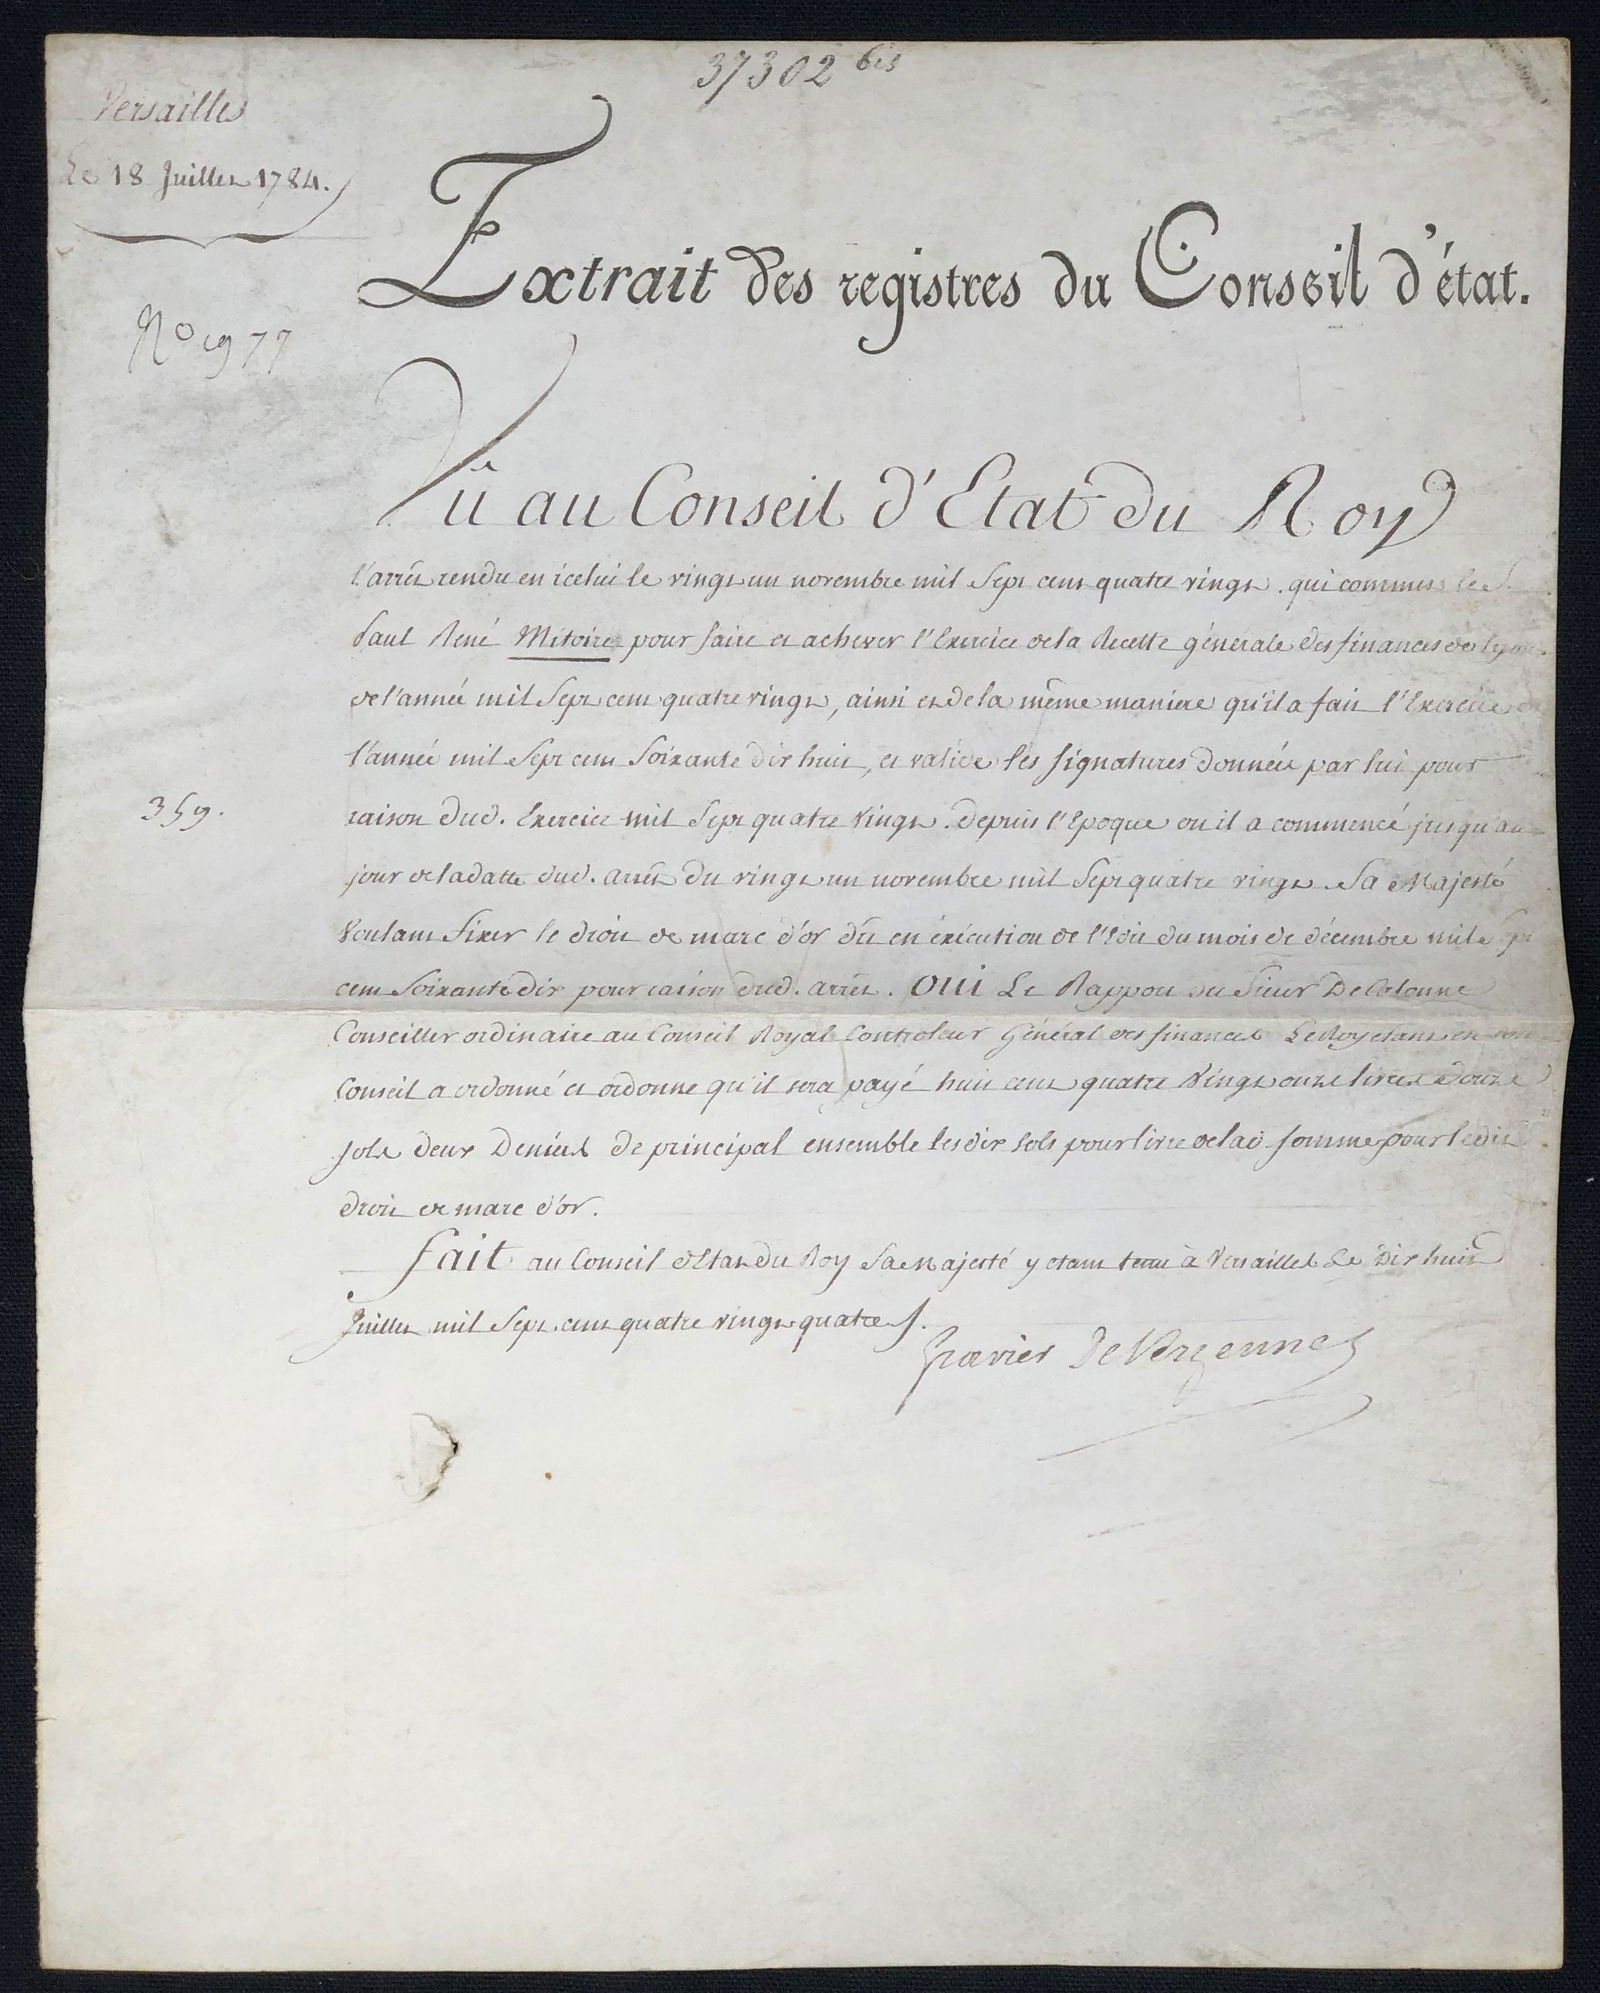 37302 bis
Versailles
Le 18 Juillet 1784.
Extrait des registres du Conseil d'état.
N° 1977
Vû au Conseil d'Etat du Roy
l'arrêt rendu en icelui le vingt un novembre mil Sept cent quatre vingt. qui commet le S.
Paul René Mitoire pour faire et achever l'Exercice de la Recette générale des finances de Lyon
de l'année mil Sept cent quatre vingt, ainsi et de la même maniere qu'il a fait l'Exercice de
l'année mil Sept cent Soixante dix huit, et valide les signatures données par lui pour
359.
raison dud. Exercice mil Sept quatre vingt. depuis l'Epoque ou il a commencé jusqu'au
jour de la datte dud. arrêt du vingt un novembre mil Sept quatre vingt Sa Majesté
Voulant fixer le droit de marc d'or dû en éxécution de l'Edit du mois de décembre mil Sept
cent Soixante dix pour raison dud. arrêt. OUI Le Rapport du Sieur De Calonne
Conseiller ordinaire au Conseil Royal Controleur Général des finances Le Roy etant en son
Conseil a ordonné et ordonne qu'il sera payé huit cent quatre Vingt onze livres douze
sols deux Deniers de principal ensemble les dix sols pour livre de lad somme pour ledit
droit de marc d'or.
fait au Conseil d'Etat du Roy Sa Majesté y etant tenu à Versailles Le Dix huit
Juillet mil Sept cent quatre vingt quatre.
Gravier De Vergennes